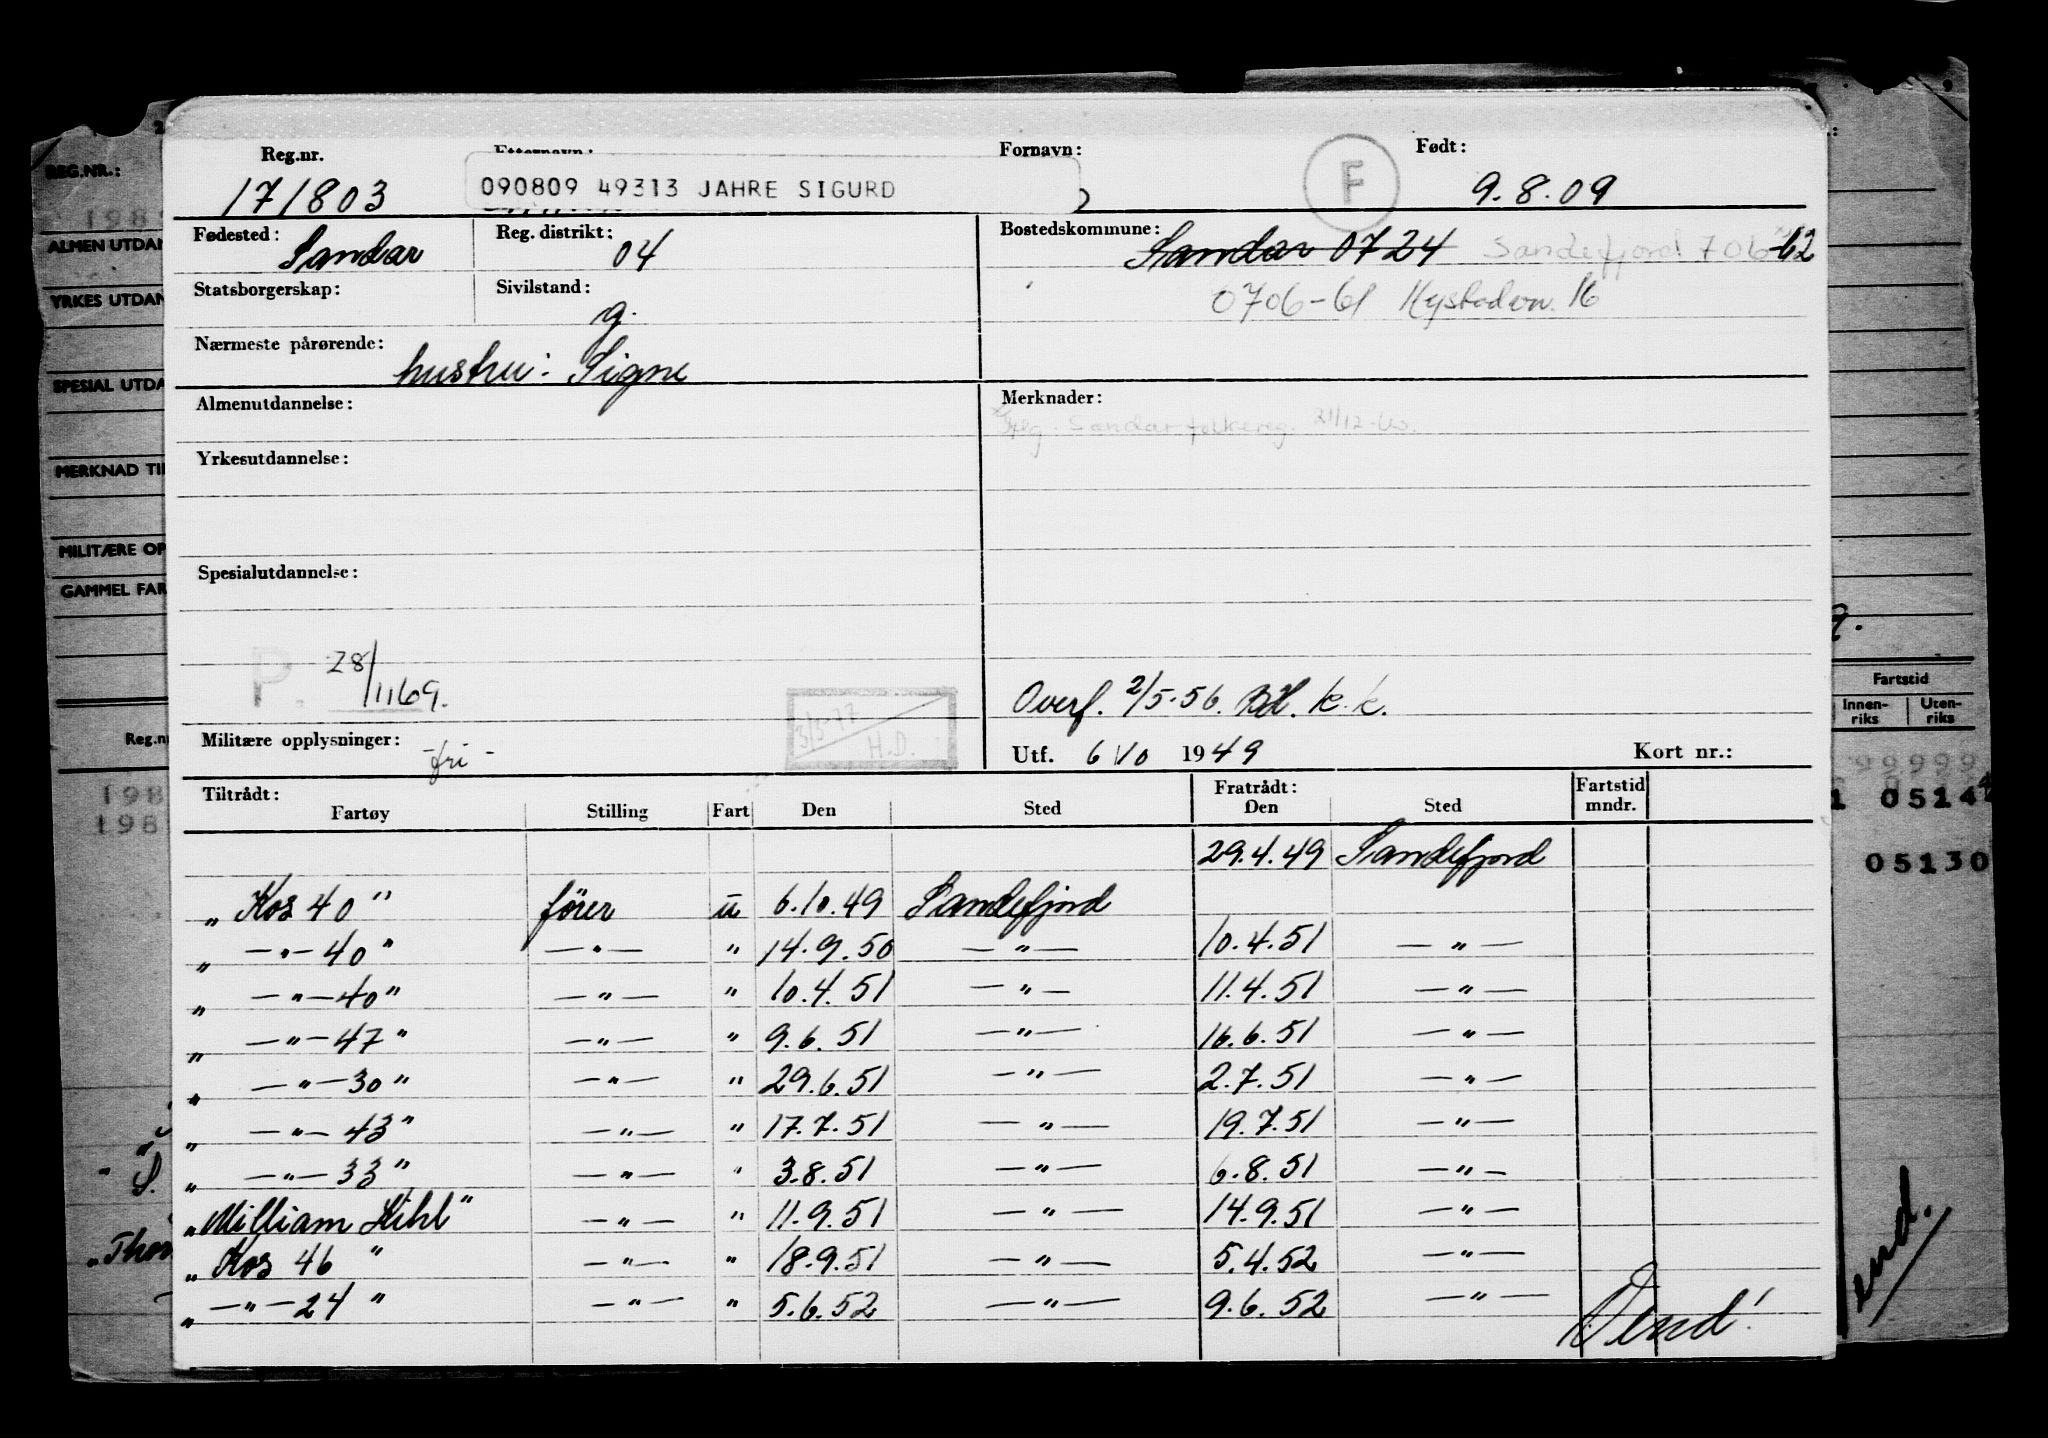 Reg.nr. Etternavn: Fornavn: Født:
171803 090809 49313 JAHRE SIGURD F 9.8.09
Fødested: Sandar Reg. distrikt: 04 Bostedskommune: Sandar 0724 Sandefjord 706-62
Statsborgerskap: Sivilstand: g. 0706-61 Hystadvn. 16
Nærmeste pårørende: hustru: Signe
Almenutdannelse: Merknader:
Sandar folkereg. 21/12
Yrkesutdannelse:
Spesialutdannelse:
P. 28/1169.
Overf. 2/5-56. k.k.
3/5-77 H.D.
Militære opplysninger: -fri- Utf. 6/10 1949 Kort nr.:
Tiltrådt: Fratrådt: Fartstid
Fartøy Stilling Fart Den Sted Den Sted mndr.
29.4.49 Sandefjord
„ Kos 40 " fører u 6.10.49 Sandefjord
„ —"—40 " —"— " 14.9.50 —"— 10.4.51 —"—
„ —"—40 " —"— " 10.4.51 —"— 11.4.51 —"—
„ —"—47 " —"— " 9.6.51 —"— 16.6.51 —"—
„ —"—30 " —"— " 29.6.51 —"— 2.7.51 —"—
„ —"—43 " —"— " 17.7.51 —"— 19.7.51 —"—
„ —"—33 " —"— " 3.8.51 —"— 6.8.51 —"—
„ William Wihl " —"— " 11.9.51 —"— 14.9.51 —"—
„ Kos 46 " —"— " 18.9.51 —"— 5.4.52 —"—
„ —"—24 " —"— " 5.6.52 —"— 9.6.52 —"—
Vend!
REG.NR.:
198
ALMEN UTDAN
YRKES UTDAN
SPESIAL UTDA
MERKNAD TI
MILITÆRE OP
GAMMEL FAR
Reg.n
198
198
S.
„Thor
Fartstid
Innen-riks Uten-riks
99999
1 05144
05130
end.